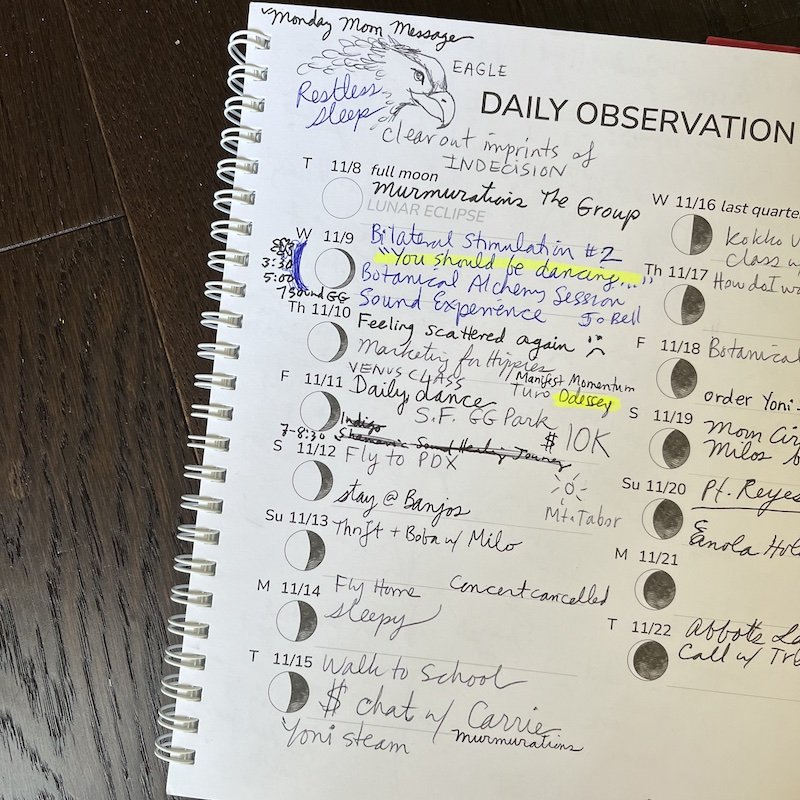 Monday Mom Message
EAGLE
Restless
Sleep
DAILY OBSERVATION
Clear out imprints of
INDECISION
T 11/8 full moon
Murmurations The Group
LUNAR ECLIPSE
W 11/9 Bilateral Stimulation #2
"You should be dancing..."
3:30
5:00
Botanical Alchemy Session
7 Sound GG
Sound Experience Jo Bell
Th 11/10 Feeling scattered again
Marketing for Hippies
VENUS CLASS
Manifest Momentum
F 11/11 Daily dance
Turo Odessey
S.F. GG Park
$10K
7-8:30 Indigo
Shamanic Sound Healing Journey
S 11/12 Fly to PDX
stay @ Banjos
Mt. Tabor
Su 11/13 Thrift + Boba w/ Milo
M 11/14 Fly Home Concert cancelled
sleepy
T 11/15 Walk to School
$ chat w/ Carrie
Yoni steam murmurations
W 11/16 last quarte
Kokko
class w
Th 11/17 How do I w
F 11/18 Botanical
order Yoni
S 11/19 Mom Cir
Milos
Su 11/20 Pt. Reyes
Enola Hol
M 11/21
T 11/22 Abbotts La
Call w/ Tr